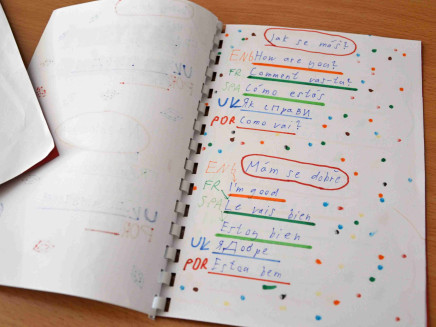 Jak se máš?
ENG How are you?
FR Comment vas-tu?
SPA Cómo estás
UK Як справи
POR Como vai?
Mám se dobře
ENG I'm good
FR Le vais bien
SPA Estou bien
UK Я Добре
POR Estou bem